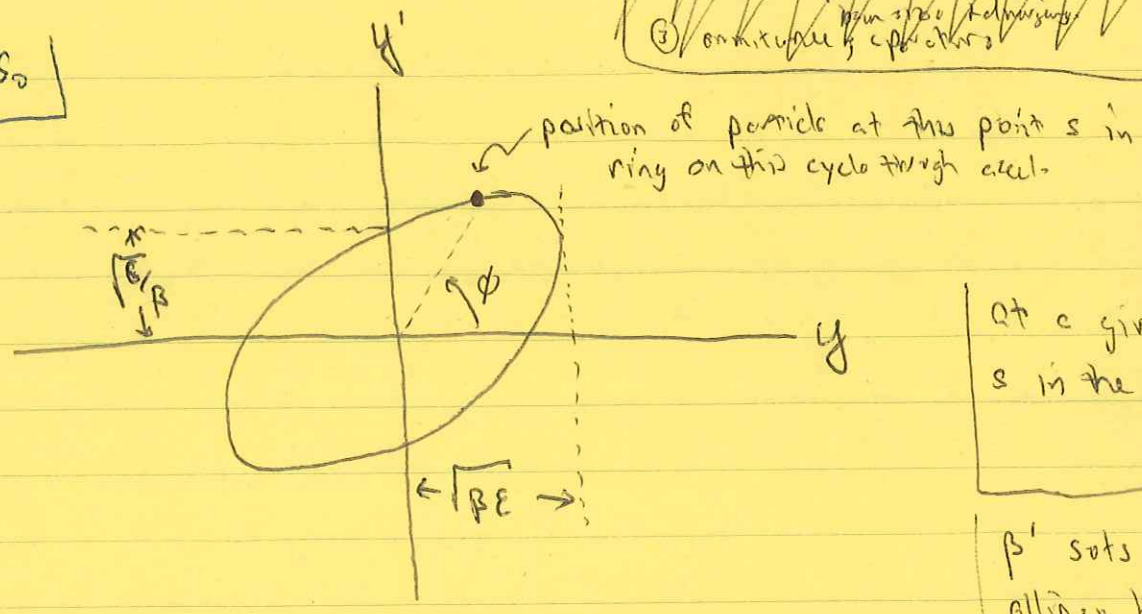 S₀
③
y'
position of particle at this point s in
ring on this cycle through accel.
√ε/β
φ
y
at a giv
s in the
√βε
β' sets